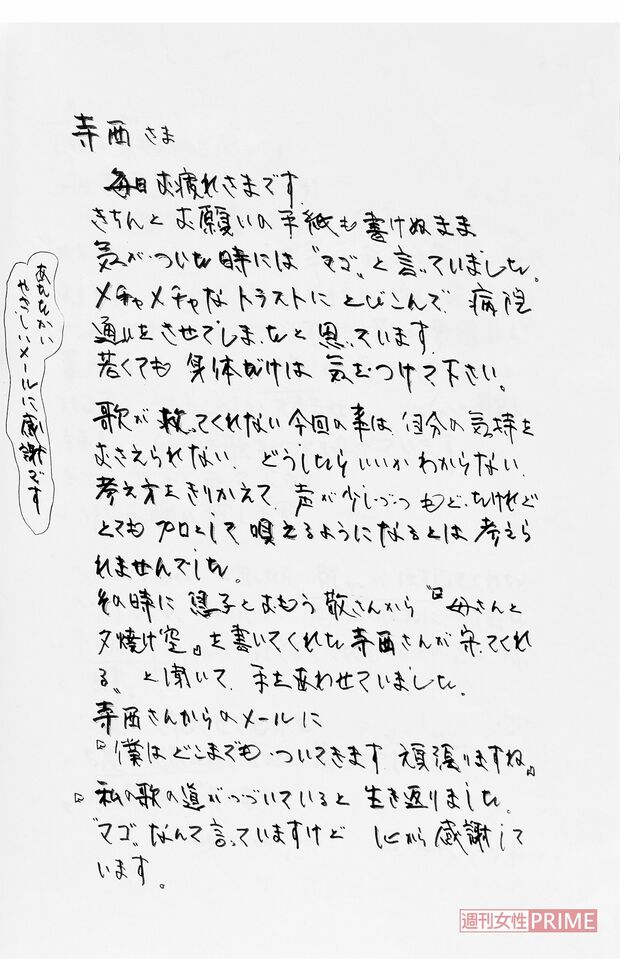 寺西さま
毎日お疲れさまです
きちんとお願いの手紙も書けぬまま
気がついた時には“マゴ”と言っていました。
メチャメチャなトラストにとびこんで、病院
通いをさせてしまったと思っています
若くても身体だけは気をつけて下さい。
歌が救ってくれない今回の事は自分の気持を
おさえられない、どうしたらいいかわからない、
考え方をきりかえて、声が少しづつもどったけれど
とてもプロとして唄えるようになるとは考えら
れませんでした。
その時に息子とおもう敬さんから『母さんと
夕焼け空』を書いてくれた寺西さんが守ってくれ
る〟と聞いて、手をあわせていました。
寺西さんからのメールに
『僕はどこまでもついてきます 頑張りますね』
私の歌の道がつづいていると生き返りました。
“マゴ”なんて言っていますけど 心から感謝して
います。
あたたかい
やさしいメールに感謝です
週刊女性PRIME